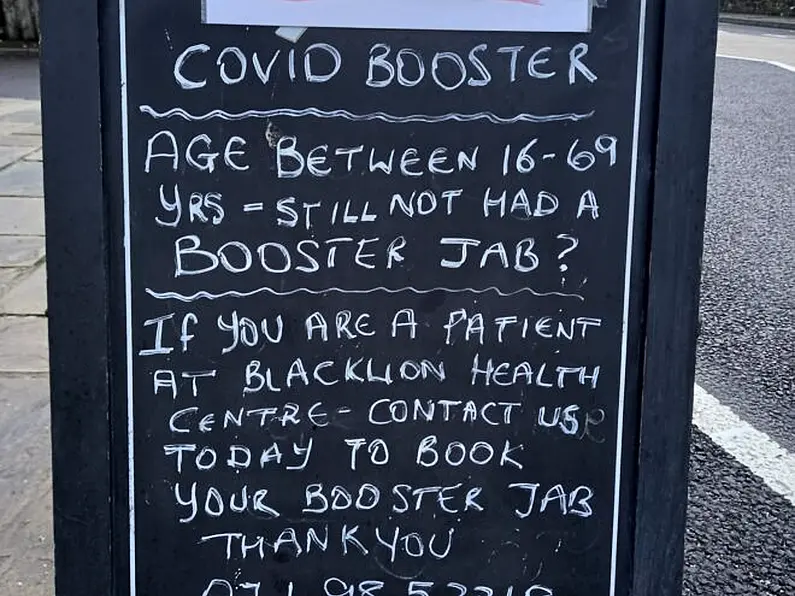 COVID BOOSTER
AGE BETWEEN 16-69
YRS = STILL NOT HAD A
BOOSTER JAB?
IF YOU ARE A PATIENT
AT BLACKLION HEALTH
CENTRE - CONTACT US
TODAY TO BOOK
YOUR BOOSTER JAB
THANK YOU